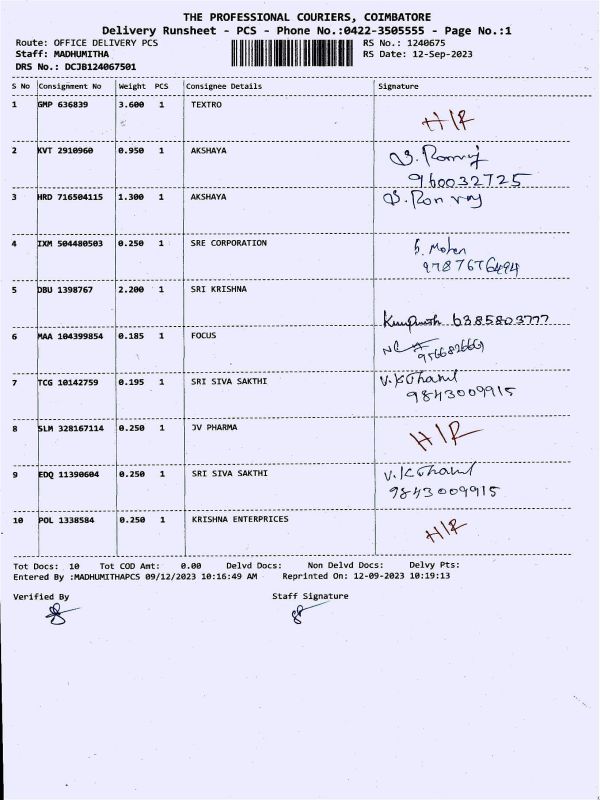 THE PROFESSIONAL COURIERS, COIMBATORE
Delivery Runsheet - PCS - Phone No.:0422-3505555 - Page No.:1
Route: OFFICE DELIVERY PCS RS No.: 1240675
Staff: MADHUMITHA RS Date: 12-Sep-2023
DRS No.: DCJB124067501
S No Consignment No Weight PCS Consignee Details Signature
1 GMP 636839 3.600 1 TEXTRO
H/R
2 KVT 2910960 0.950 1 AKSHAYA
960032725
3 HRD 716504115 1.300 1 AKSHAYA
4 IXM 504480503 0.250 1 SRE CORPORATION
9787676494
5 DBU 1398767 2.200 1 SRI KRISHNA
6385803777
6 MAA 104399854 0.185 1 FOCUS
7 TCG 10142759 0.195 1 SRI SIVA SAKTHI
9843009915
8 SLM 328167114 0.250 1 JV PHARMA
H/R
9 EDQ 11390604 0.250 1 SRI SIVA SAKTHI
9843009915
10 POL 1338584 0.250 1 KRISHNA ENTERPRICES
H/R
Tot Docs: 10 Tot COD Amt: 0.00 Delvd Docs: Non Delvd Docs: Delvy Pts:
Entered By :MADHUMITHAPCS 09/12/2023 10:16:49 AM Reprinted On: 12-09-2023 10:19:13
Verified By Staff Signature